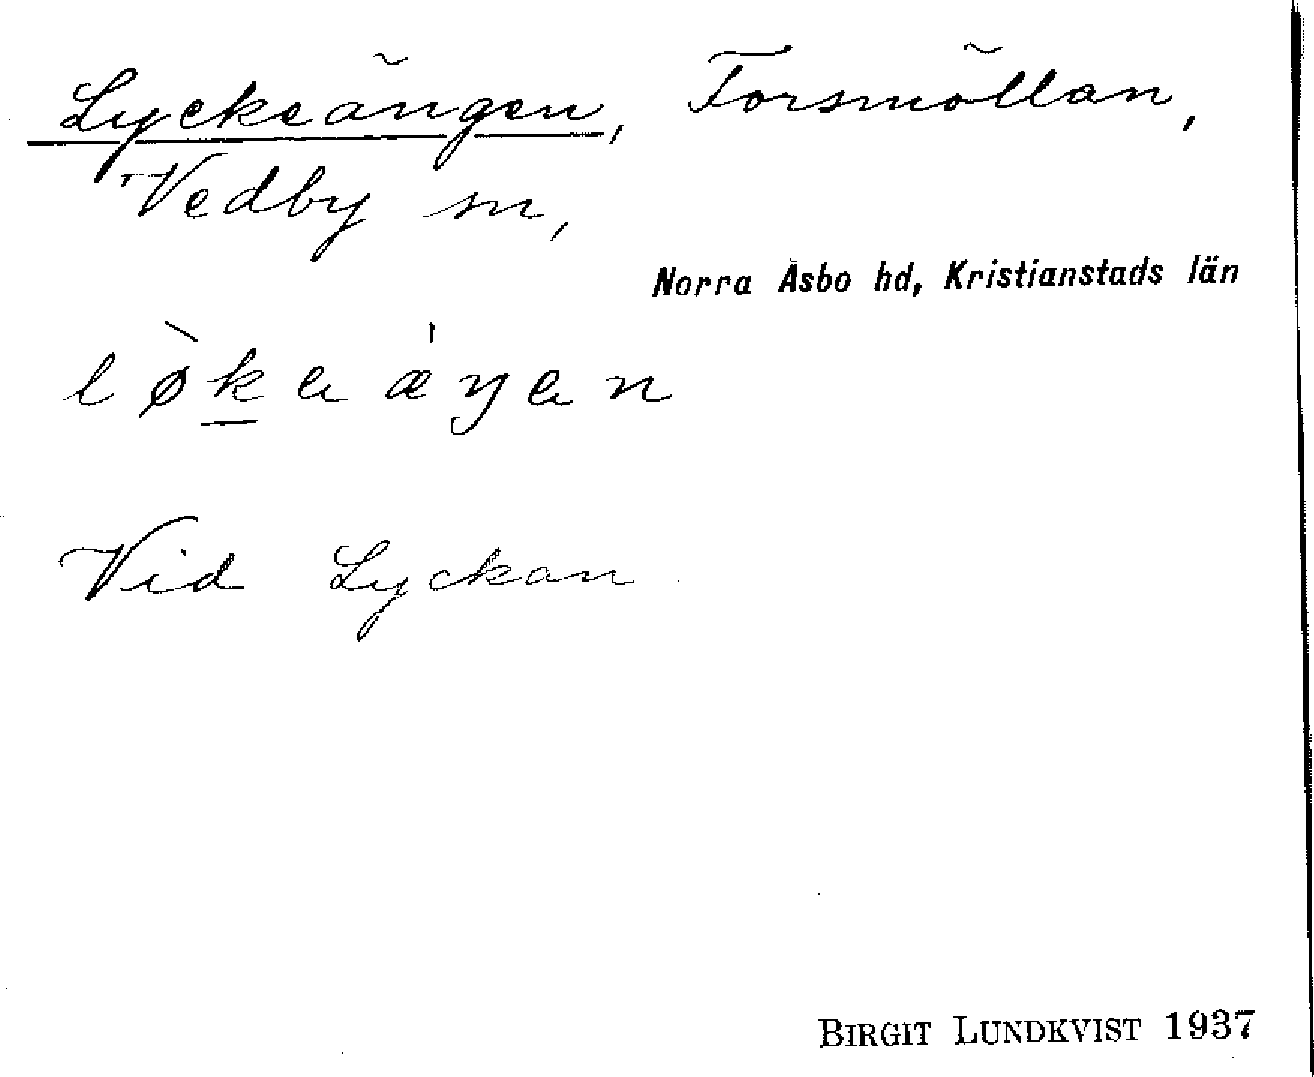 Lyckeängen, Forsmöllan,
Vedby sn,
Norra Åsbo hd, Kristianstads län
lø̀kaæ̍ŋan
Vid Lyckan
BIRGIT LUNDKVIST 1937